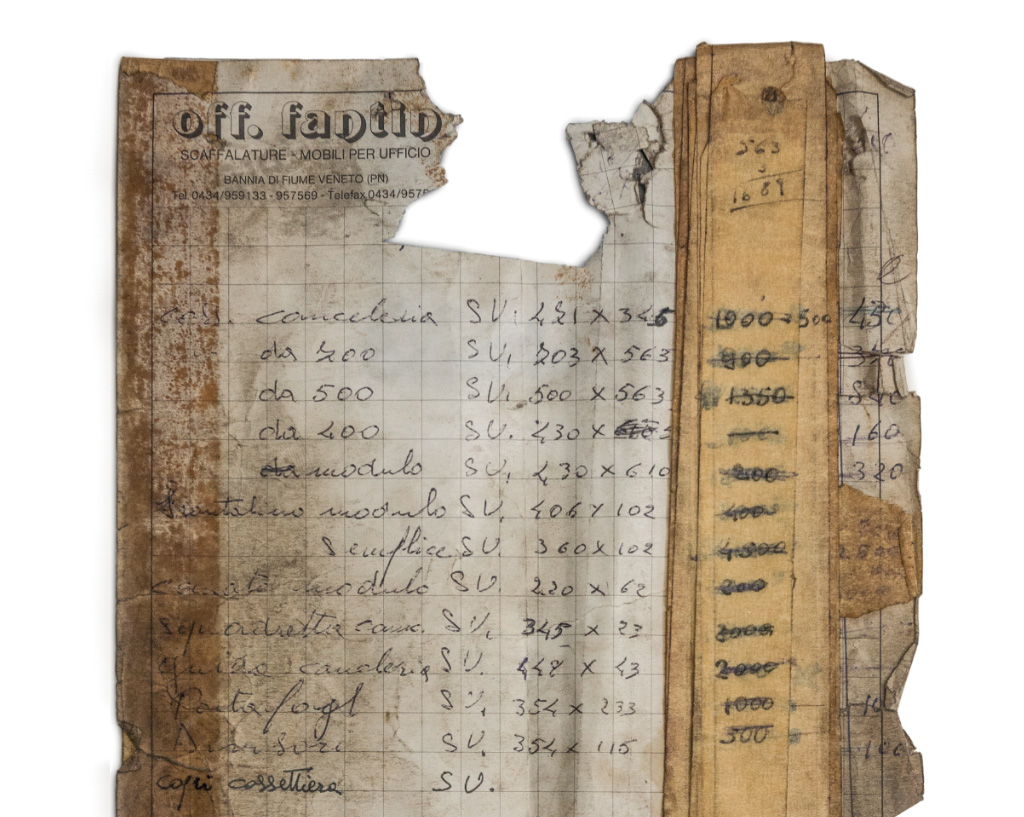 off. fantin
SCAFFALATURE - MOBILI PER UFFICIO
BANNIA DI FIUME VENETO (PN)
Tel. 0434/959133 - 957569 - Telefax 0434/9575
563
3
1689
cass. cancelleria SV. 421 x 345 1000 500 450
da 200 SV. 203 x 563 900
da 500 SV. 500 x 563 1350
da 400 SV. 430 x 160
da modulo SV. 430 x 610 800 320
Frontalino modulo SV. 406 x 102 400
Semplice SV. 360 x 102 4500
modulo SV. 220 x 62 200
squadretta canc. SV. 345 x 23 2000
guida cancelleria SV. 448 x 43 2000
Portafogl SV. 354 x 233 1000
Divisori SV. 354 x 115 500
copri cassettiera SV.